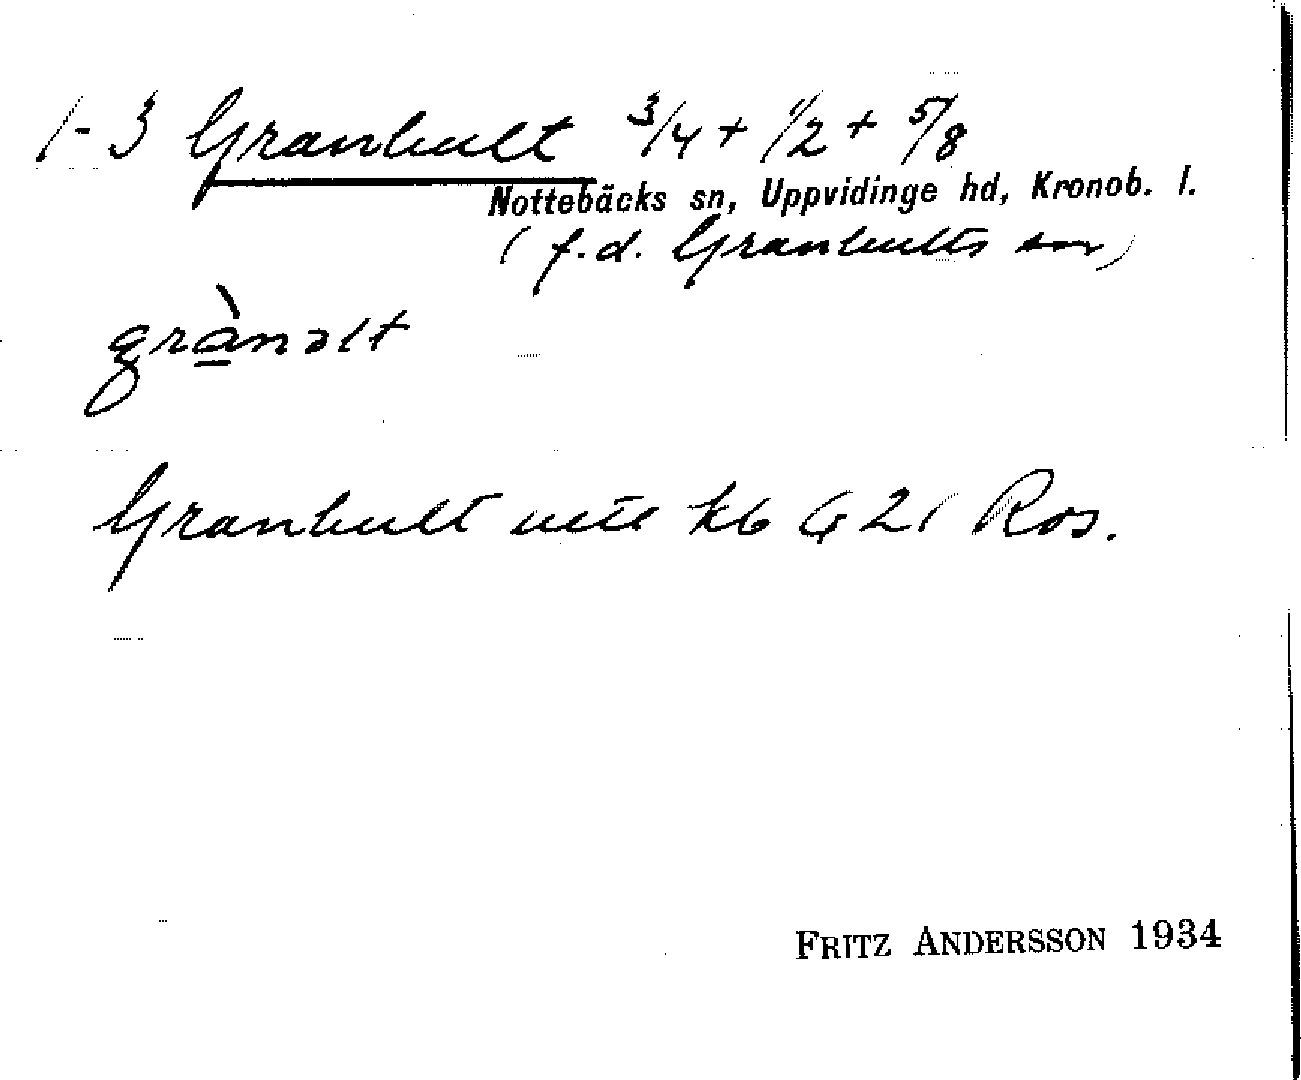 1-3 Granhult 3/4 + 1/2 + 5/8
Nottebäcks sn, Uppvidinge hd, Kronob. l.
(f.d. Granhults sn)
grànəlt
Granhult kb G 21 Ros.
FRITZ ANDERSSON 1934